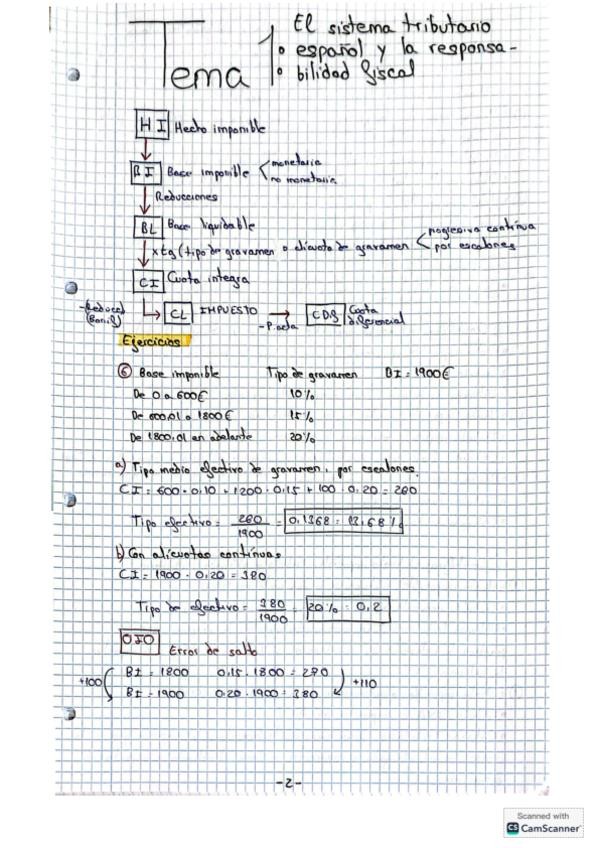 Tema 1:
El sistema tributario
español y la responsa-
bilidad fiscal
HI Hecho imponible
BI Base imponible monetaria
no monetaria
Reducciones
BL Base liquidable
x tg (tipo de gravamen o alícuota de gravamen progresiva continua
por escalones
CI Cuota integra
CL IMPUESTO
-P.acta
CDF Cuota
diferencial
Ejercicios
⑥ Base imponible Tipo de gravamen BI = 1900€
De 0 a 600€ 10%
De 600,01 a 1800€ 15%
De 1800,01 en adelante 20%
a) Tipo medio efectivo de gravamen, por escalones.
CI = 600 · 0,10 + 1200 · 0,15 + 100 · 0,20 = 260
Tipo efectivo = 260/1900 = 0,1368 = 13,68%
b) Con alícuotas continuas
CI = 1900 · 0,20 = 380
Tipo de efectivo = 380/1900 = 20% = 0,2
OJO Error de salto
+100 BI = 1800 0,15 · 1800 = 270 +110
BI = 1900 0,20 · 1900 = 380
-2-
Scanned with
CS CamScanner